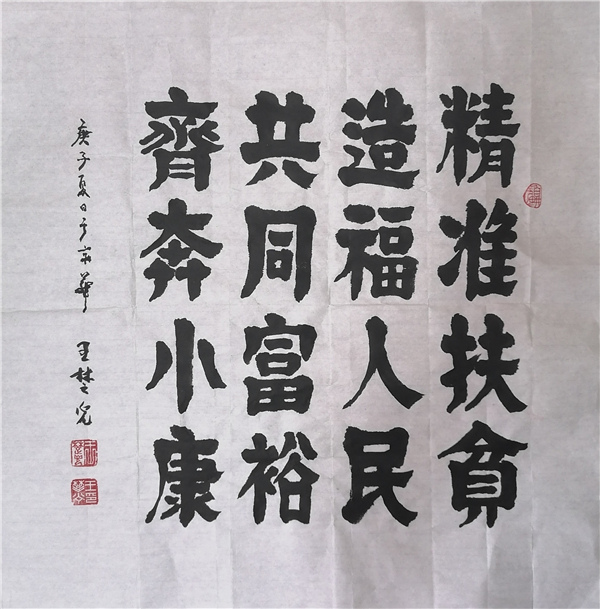 精准扶贫
造福人民
共同富裕
齊奔小康
庚子夏日于京華 王楚光